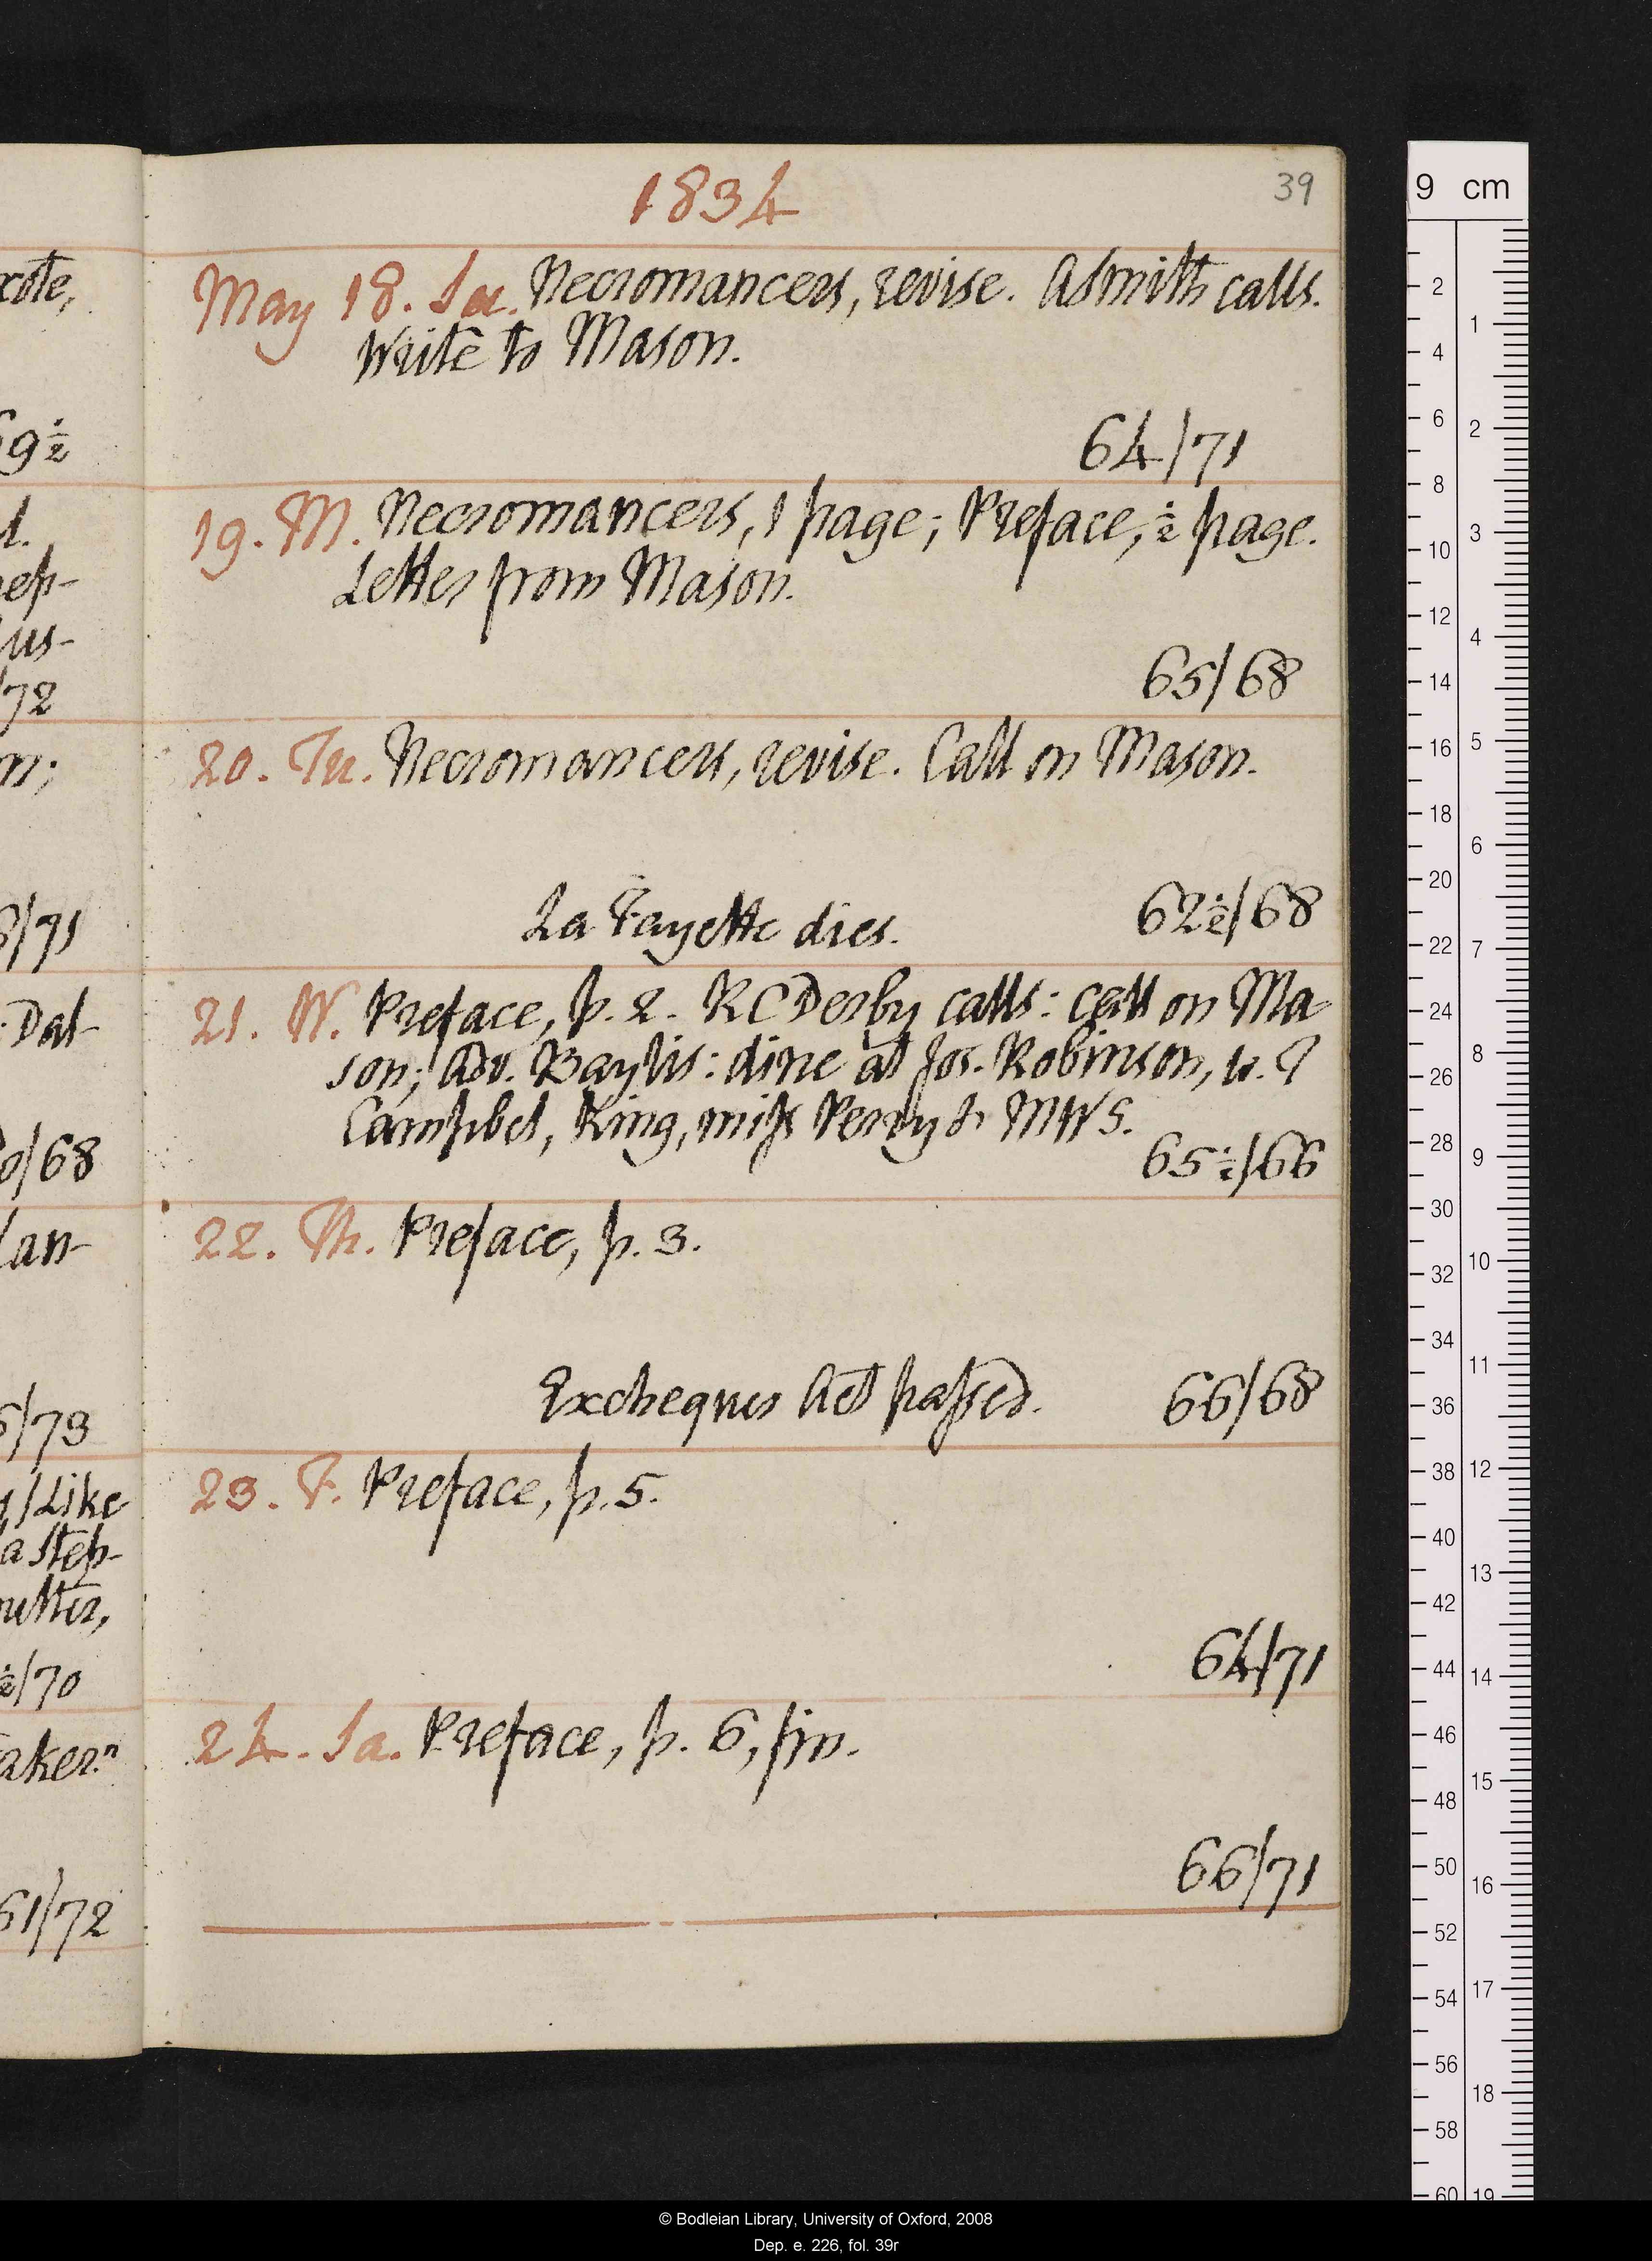 1834
39
May 18. Su. Necromancers, revise. ASmith calls.
Write to Mason.
64/71
19. M. Necromancers, 1 page; Preface, ½ page.
Letter from Mason.
65/68
20. Tu. Necromancers, revise. Call on Mason.
La Fayette dies.
62½/68
21. W. Preface, p. 2. RCDerby calls: call on Ma
son; Adv. Baylis: dine at Jos. Robinson, w. T
Campbel, King, miss Perry & MWS.
65½/66
22. Th. Preface, p. 3.
Exchequer Act passed.
66/68
23. F. Preface, p. 5.
64/71
24. Sa. Preface, p. 6, fin.
66/71
xote,
69½
ep-
us-
/72
/71
Dal-
/68
an-
/73
/Like
a step-
½/70
aker.n
61/72
9 cm
2
4
6
8
10
12
14
16
18
20
22
24
26
28
30
32
34
36
38
40
42
44
46
48
50
52
54
56
58
60
1
2
3
4
5
6
7
8
9
10
11
12
13
14
15
16
17
18
19
© Bodleian Library, University of Oxford, 2008
Dep. e. 226, fol. 39r